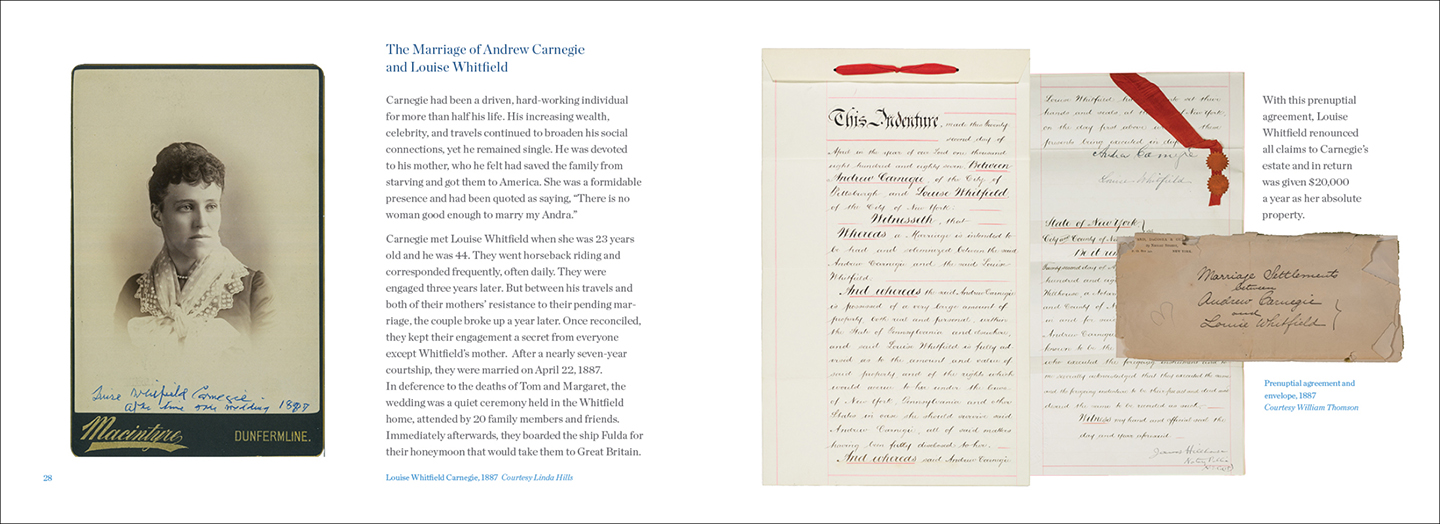 Luise Whitfield Carnegie
at the time of the wedding 1887
Macintyre
DUNFERMLINE.
28
The Marriage of Andrew Carnegie
and Louise Whitfield
Carnegie had been a driven, hard-working individual
for more than half his life. His increasing wealth,
celebrity, and travels continued to broaden his social
connections, yet he remained single. He was devoted
to his mother, who he felt had saved the family from
starving and got them to America. She was a formidable
presence and had been quoted as saying, “There is no
woman good enough to marry my Andra.”
Carnegie met Louise Whitfield when she was 23 years
old and he was 44. They went horseback riding and
corresponded frequently, often daily. They were
engaged three years later. But between his travels and
both of their mothers’ resistance to their pending mar-
riage, the couple broke up a year later. Once reconciled,
they kept their engagement a secret from everyone
except Whitfield’s mother.  After a nearly seven-year
courtship, they were married on April 22, 1887.
In deference to the deaths of Tom and Margaret, the
wedding was a quiet ceremony held in the Whitfield
home, attended by 20 family members and friends.
Immediately afterwards, they boarded the ship Fulda for
their honeymoon that would take them to Great Britain.
Louise Whitfield Carnegie, 1887 Courtesy Linda Hills
This Indenture, made this twenty
second day of
April in the year of our Lord one thousand
eight hundred and eighty seven Between
Andrew Carnegie, of the City of
Pittsburgh and Louise Whitfield
of the City of New York:
Witnesseth, that
Whereas a Marriage is intended to
be had and solemnized between the said
Andrew Carnegie and the said Louise
Whitfield
And whereas the said Andrew Carnegie
is possessed of a very large amount of
property both real and personal within
the State of Pennsylvania and elsewhere,
and said Louise Whitfield is fully ad-
vised as to the amount and value of
said property and of the rights which
would accrue to her under the laws
of New York, Pennsylvania and other
States in case she should survive said
Andrew Carnegie, all of said matters
having been fully disclosed to her.
And whereas said Andrew Carnegie
Louise Whitfield set their
hands and seals, at New York,
on the day first above these
presents being executed in
Andrew Carnegie
Louise Whitfield
State of New York
City and County of New
hundred and eig
and County of N
and for
Andrew Carnegie
known to be the
who executed the foregoing instrument and to
me severally acknowledged that they executed the same
and the foregoing instrument to be their free act and deed and
desired the same to be recorded as such.
Witness my hand and official seal the
day and year aforesaid
Marriage Settlements
between
Andrew Carnegie
and
Louise Whitfield
With this prenuptial
agreement, Louise
Whitfield renounced
all claims to Carnegie’s
estate and in return
was given $20,000
a year as her absolute
property.
Prenuptial agreement and
envelope, 1887
Courtesy William Thomson